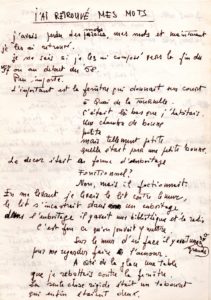 J'AI RETROUVÉ MES MOTS
j'avais perdu des paroles, mes mots et maintenant
je les ai retrouvé.
je ne sais si je les ai composé vers la fin de
57 ou au début du 58.
Peu importe.
L'important est la fenêtre qui donnait sur court
à Quai de la Tournelle
c'était là bas que j'habitais
une chambre de bonne
petite
mais tellement petite
qu'elle était pour une petite bonne.
Le decors était en forme d'emboitage
Fonctionnel?
Non, mais il fonctionnait.
En me levant je lisais le lit contre le mur,
le lit s'incastrait dans un emboitage
dans l'emboitage il y avait une bibliothèque et la radio
C'est fou ce qu'on pouvait y mettre
Sur le mur d'en face il y avait une glace
pour me regarder faire l'amour.
A coté de la glace une table
que je rabattais contre la fenêtre.
La seule chose rigide était un tabouret
qui enfin était dur.